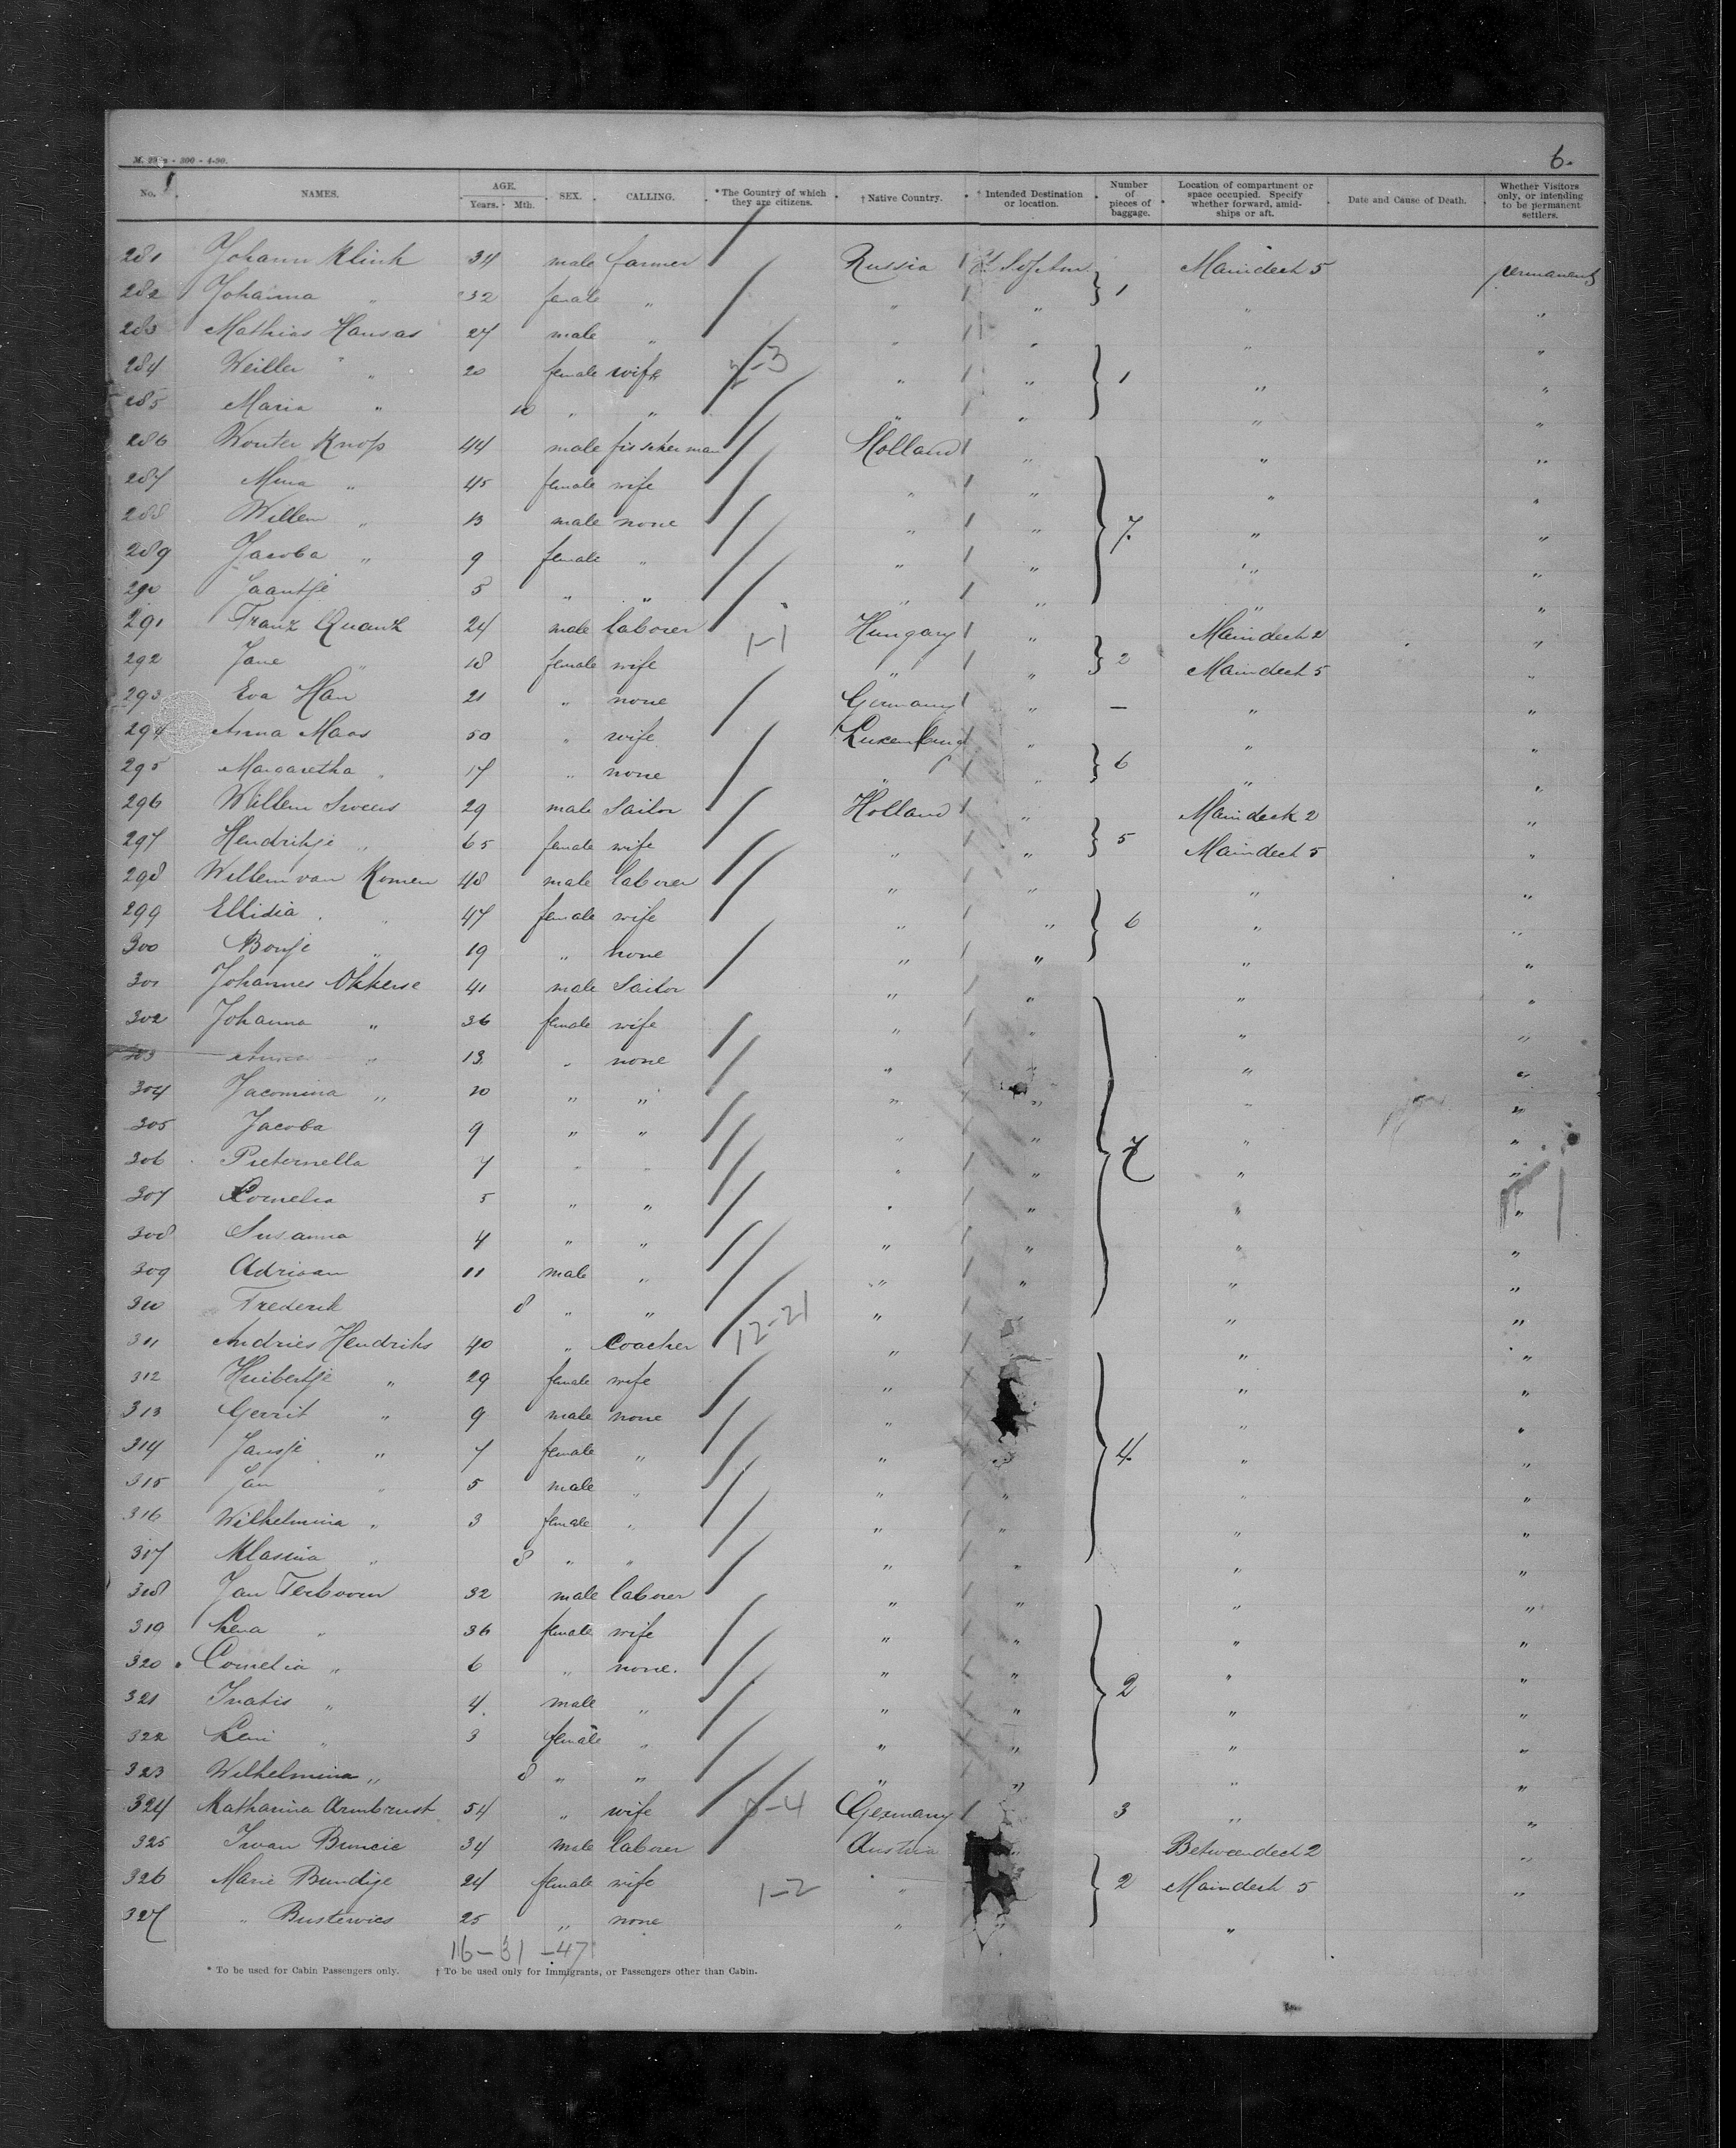 M. 29 - 300 - 4-90.
6.
No. NAMES. AGE. Years. Mth. SEX. CALLING. *The Country of which they are citizens. †Native Country. †Intended Destination or location. Number of pieces of baggage. Location of compartment or space occupied. Specify whether forward, amid-ships or aft. Date and Cause of Death. Whether Visitors only, or intending to be permanent settlers.
281 Johann Klink 34 male farmer Russia Maindeck 5 permanent
282 Johanna " 32 female " " " 1 " "
283 Mathias Hansas 27 male " " " " "
284 Weiller " 20 female wife 2-3 " " 1 " "
285 Maria " 10 " " " " " "
286 Wouter Knop 44 male fisscherman Holland " " "
287 Mina " 45 female wife " " " "
288 Willem " 13 male none " " 7. " "
289 Jacoba " 9 female " " " " "
290 Jaantje 5 " " " " " "
291 Franz Quank 24 male laborer 1-1 Hungary " Maindeck 2 "
292 Jane " 18 female wife " " 2 Maindeck 5 "
293 Eva Han 21 " none Germany " — " "
294 Anna Maas 50 " wife " " "
295 Margaretha " 17 " none " " 6 " "
296 Willem Sweers 29 male Sailor Holland " Maindeck 2 "
297 Hendrikje " 65 female wife " " 5 Maindeck 5 "
298 Willem van Komen 48 male laborer " " " "
299 Ellidia " 47 female wife " " 6 " "
300 Bonje " 19 " none " " " "
301 Johannes Okkerse 41 male Sailor " " " "
302 Johanna " 36 female wife " " " "
303 13 " none " " " "
304 Jacomina " 10 " " " " " "
305 Jacoba 9 " " " " " "
306 Pieternella 7 " " " " 7 " "
307 Cornelia 5 " " " " " "
308 Susanna 4 " " " " " "
309 Adriaan 11 male " " " " "
310 Frederik 8 " " 12-21 " " "
311 Andries Hendriks 40 " Coacher " " "
312 Huibertje " 29 female wife " " "
313 Gerrit " 9 male none " " "
314 Jansje " 7 female " " 4. " "
315 Jan " 5 male " " " " "
316 Wilhelmina " 3 female " " " " "
317 Klasina " 8 " " " " " "
318 Jan Terboven 32 male laborer " " " "
319 Lena " 36 female wife " " " "
320 Cornelia " 6 " none. " " " "
321 " 4. male " " " 2 " "
322 Leni " 3 female " " " " "
323 Wilhelmina " 8 " " " " " "
324 Katharina Armbrust 54 " wife Germany 3 " "
325 Iwan Buncic 34 male laborer Austria " Betweendeck 2 "
326 Marie Bundije 24 female wife 1-2 " 2 Maindeck 5 "
327 " Bustevics 25 " none " " "
16-31-47
* To be used for Cabin Passengers only. † To be used only for Immigrants, or Passengers other than Cabin.